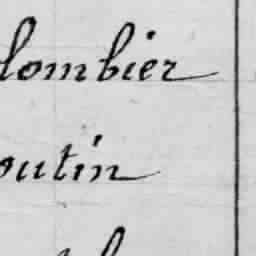 lombier
outin